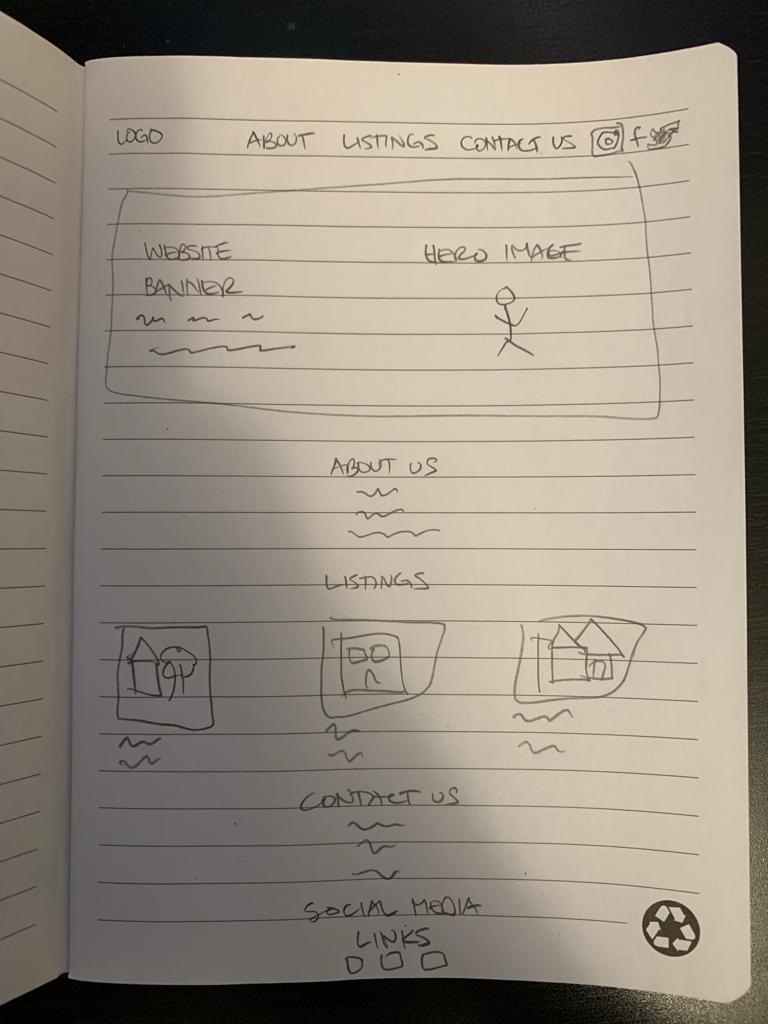 LOGO ABOUT LISTINGS CONTACT US f
WEBSITE HERO IMAGE
BANNER
ABOUT US
LISTINGS
CONTACT US
SOCIAL MEDIA
LINKS